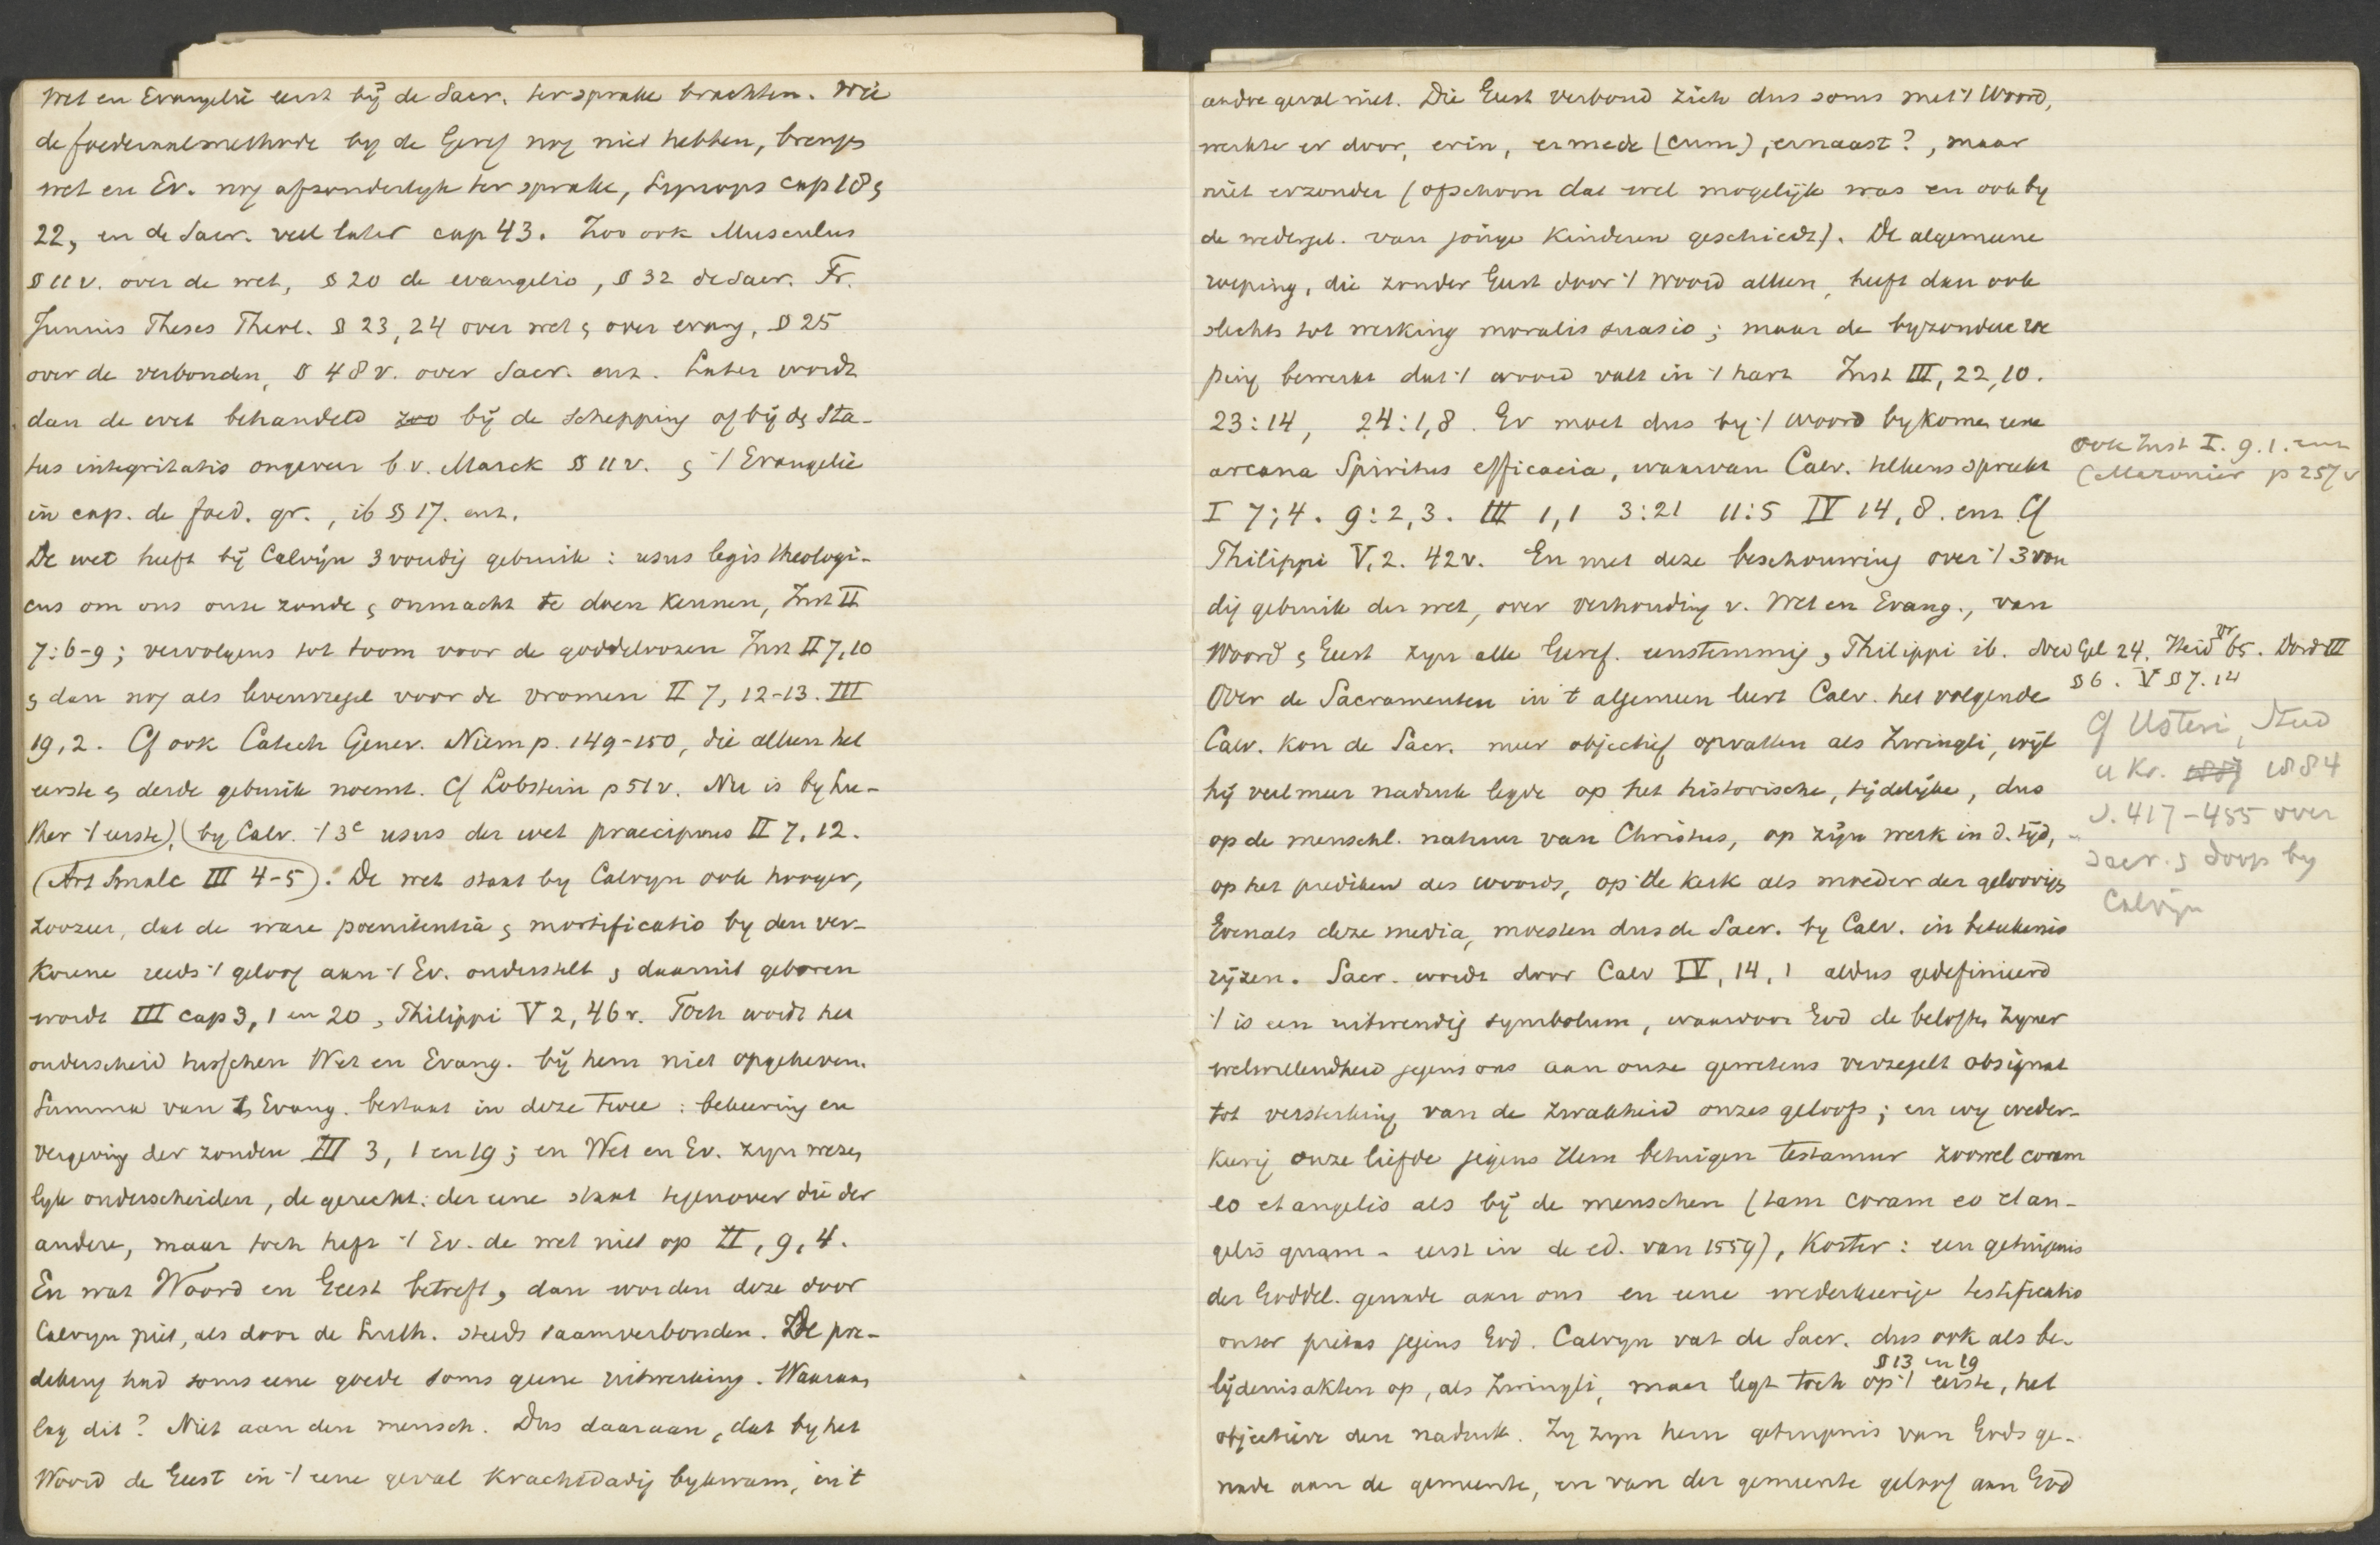 Wet en Evangelie eerst bij de Sacr. ter sprake brachten. Wie
de foederaalmethode by de Geref nog niet hebben, brengen
wet en Ev. nog afzonderlyk ter sprake, Synops cap 18 &
22, en de Sacr. veel later cap 43. Zoo ook Musculus
§ 11 v. over de wet, § 20 de evangelio, § 32 de Sacr. Fr.
Junius Theses Theol. § 23, 24 over wet & over evang, § 25
over de verbonden, § 48 v. over Sacr. enz. Later wordt
dan de wet behandeld zoo bij de schepping of bij de sta-
tus integritatis ongeveer b.v. Marck § 11 v. & 't Evangelie
in cap. de foed. gr., ib § 17. enz.
De wet heeft bij Calvijn 3 voudig gebruik: usus legis theologi-
cus om ons onze zonde & onmacht te doen kennen, Inst II
7:6-9; vervolgens tot toom voor de goddeloozen Inst II 7,10
& dan nog als levensregel voor de vromen II 7, 12-13. III
19,2. Cf ook Catech Genev. Niem p. 149-150, die alleen het
eerste & derde gebruik noemt. Cf Lobstein p 51 v. Nu is by Lu-
ther 't eerste), (by Calv. 't 3e usus der wet praecipuus II 7,12.
(Art Smalc III 4-5). De wet staat by Calvyn ook hooger,
zoozeer, dat de ware poenitentia & mortificatio by den ver-
korene reeds 't geloof aan 't Ev. onderstelt & daaruit geboren
wordt III cap 3, 1 en 20, Philippi V 2, 46 v. Toch wordt het
onderscheid tusschen Wet en Evang. bij hem niet opgeheven.
Summa van 't Evang. bestaat in deze twee: bekeering en
vergeving der zonden III 3, 1 en 19; en Wet en Ev. zyn wezen
lyk onderscheiden, de gerecht: der eene staat tegenover die der
andere, maar toch heft 't Ev. de wet niet op II, 9, 4.
En wat Woord en Geest betreft, dan worden deze door
Calvyn niet, als door de Luth. steeds saamverbonden. De pre-
diking had soms eene goede soms geene uitwerking. Waaraan
lag dit? Niet aan den mensch. Dus daaraan, dat by het
Woord de Geest in 't eene geval krachtdadig bykwam, in 't
andre geval niet. Die Geest verbond zich dus soms met 't Woord,
werkte er door, erin, ermede (cum), ernaast?, maar
niet erzonder (ofschoon dat wel mogelijk was en ook by
de wedergeb. van jonge kinderen geschiedt). De algemeene
roeping, die zonder Geest door 't Woord alleen, heeft dan ook
slechts tot werking moralis suasio; maar de byzondere roe
ping bewerkt dat 't woord valt in 't hart Inst III, 22,10.
23:14, 24:1,8. Er moet dus by 't woord bykomen eene
arcana Spiritus efficacia, waarvan Calv. telkens spreekt
I 7:4. 9:2,3. III 1,1 3:21 11:5 IV 14,8. enz Cf
Philippi V,2. 42 v. En met deze beschouwing over 't 3 vou
dig gebruik der wet, over verhouding v. Wet en Evang., van
Woord & Geest zyn alle Geref. eenstemmig, Philippi ib. Ned Gel 24. Heid vr 65. Dord III
§ 6. V § 7. 14
Over de Sacramenten in 't algemeen leert Calv. het volgende
Calv. kon de Sacr. meer objectief opvatten als Zwingli, wijl
hij veel meer nadruk legde op het historische, tijdelijke, dus
op de menschl. natuur van Christus, op zijn werk in d. tijd,
op het prediken des woords, op de kerk als moeder der geloovigen
Evenals deze media, moesten dus de Sacr. by Calv. in beteekenis
rijzen. Sacr. wordt door Calv IV, 14, 1 aldus gedefinieerd
't is een uitwendig symbolum, waardoor God de beloften zyner
welwillendheid jegens ons aan onze gewetens verzegelt obsignat
tot versterking van de zwakheid onzes geloofs; en wy weder-
keerig onze liefde jegens Hem betuigen testamur zoowel coram
eo et angelis als bij de menschen (tam coram eo et an-
gelis quam - eerst in de ed. van 1559), Korter: een getuigenis
der Goddel. genade aan ons en eene wederkeerige testificatio
onzer pietas jegens God. Calvyn vat de Sacr. dus ook als be-
lijdenisakten op, als Zwingli, § 13 en 19 maar legt toch op 't eerste, het
objectieve den nadruk. Zy zyn hem getuigenis van Gods ge-
nade aan de gemeente, en van der gemeente geloof aan God
ook Inst I. 9. 1. enz
(Maronier p 257 v
Cf Usteri, Stud
u Kr. 1884
S. 417-455 over
sacr. & doop by
Calvijn